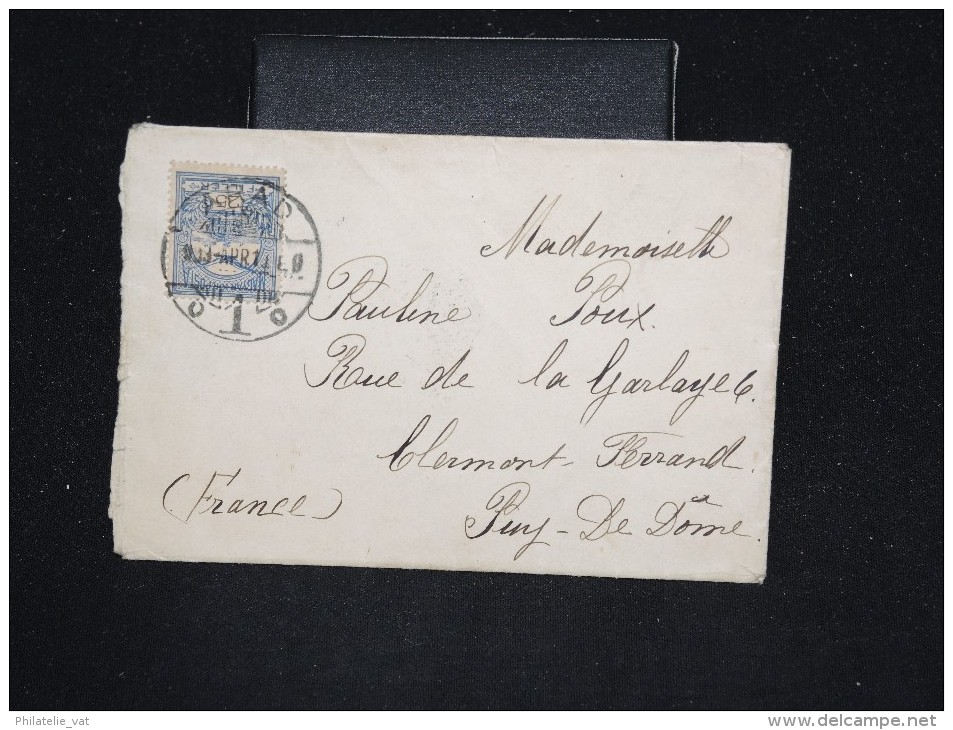 Mademoiselle
Pauline Poux.
Rue de la Garlaye 6.
Clermont-Ferrand.
(France) Puy-De Dôme.
25
FILLER
ARAD
913 APR 14
1
Philatelie_vat
delcampe.net